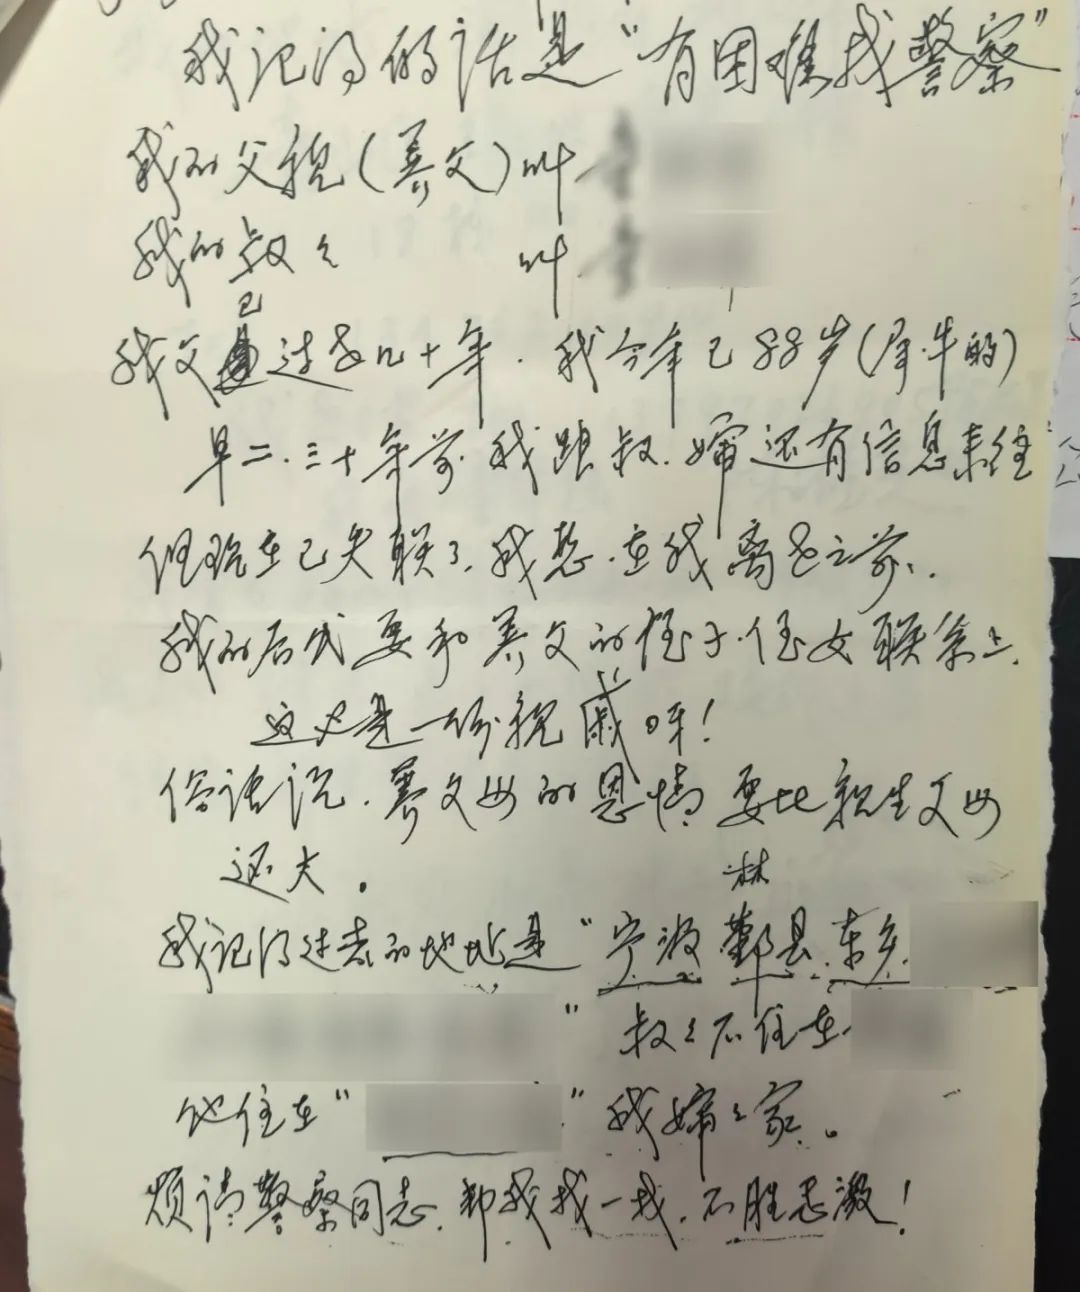 我记得的话是“有困难找警察”
我的父亲(养父)叫
我的叔々 叫
已
我父过世几十年.我今年已88岁(属牛的)
早二.三十年前.我跟叔.婶还有信息来往
但现在已失联了.我想.在我离世之前.
我的后代要和养父的侄子.侄女联系上.
这也是一份亲戚呀!
俗话说.养父母的恩情要比亲生父母
还大.
林
我记得过去的地址是“宁波鄞县.东乡
” 叔々不住在
他住在“ ”我婶々家.
烦请警察同志.帮我找一找.不胜感激!